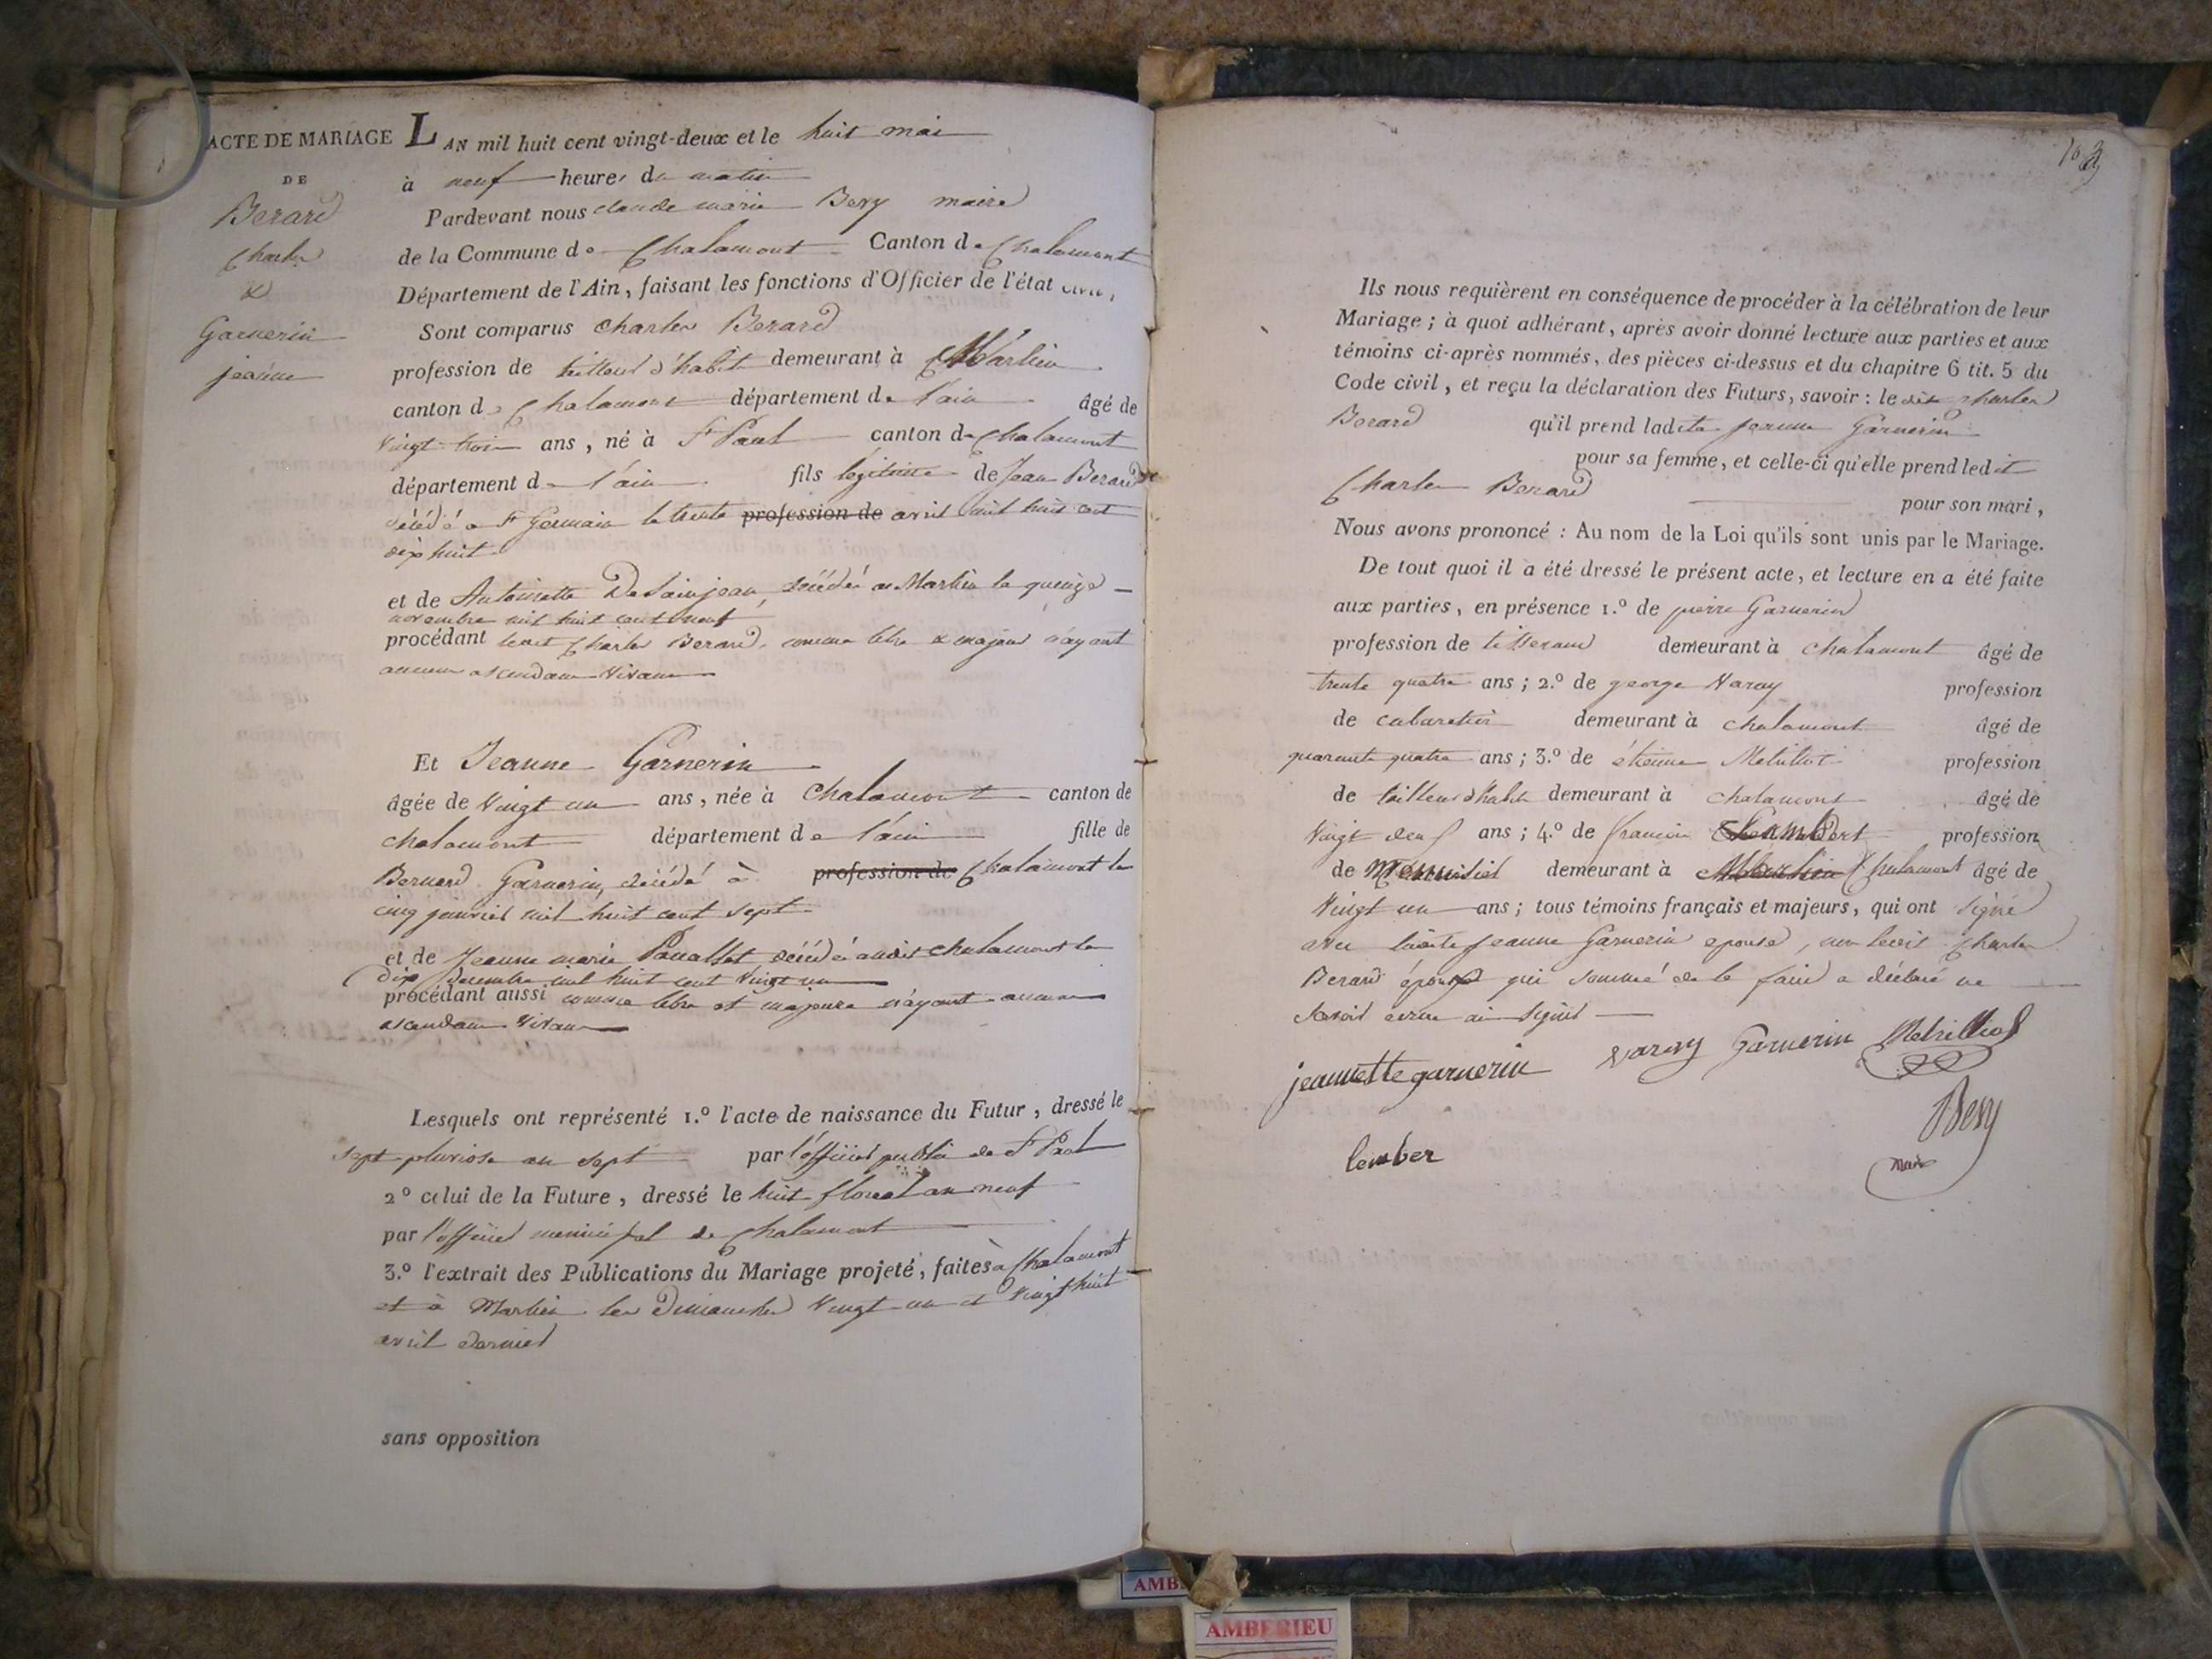 ACTE DE MARIAGE
DE
Berard
Charles
&
Garnerin
jeanne
LAN mil huit cent vingt-deux et le huit mai
à neuf heures du matin
Pardevant nous claude marie Bevy maire
de la Commune de Chalamont Canton de Chalamont
Département de l'Ain, faisant les fonctions d'Officier de l'état civil,
Sont comparus Charles Berard
profession de tailleur d'habit demeurant à Marlieu
canton de Chalamont département de l'ain âgé de
vingt trois ans, né à St Paul canton de Chalamont
département de l'ain fils légitime de Jean Berard
décédé a St Germain le trente profession de avril mil huit cent
dix huit
et de Antoinette Desainjean, décédée a Marlieu le quinze
novembre mil huit cent neuf
procédant ledit Charles Berard, comme libre & majeur n'ayant
aucun ascendans vivans
Et Jeanne Garnerin
âgée de vingt un ans, née à Chalamont canton de
chalamont département de l'ain fille de
Bernard Garnerin, décédé à profession de Chalamont le
cinq janvier mil huit cent sept
et de Jeanne marie décédée audit chalamont le
dix decembre mil huit cent vingt un
procédant aussi comme libre et majeure n'ayant aucun
ascendans vivans
Lesquels ont représenté 1.º l'acte de naissance du Futur, dressé le
sept pluviose an sept par l'officier public de St Paul
2º celui de la Future, dressé le huit floreal an neuf
par l'officier municipal de Chalamont
3.º l'extrait des Publications du Mariage projeté, faites à Chalamont
et à Marlieu les Dimanches vingt un et vingt huit
avril dernier
sans opposition
103
Ils nous requièrent en conséquence de procéder à la célébration de leur
Mariage; à quoi adhérant, après avoir donné lecture aux parties et aux
témoins ci-après nommés, des pièces ci-dessus et du chapitre 6 tit. 5 du
Code civil, et reçu la déclaration des Futurs, savoir: le dit charles
Berard qu'il prend ladite jeanne Garnerin
pour sa femme, et celle-ci qu'elle prend ledit
Charles Berard pour son mari,
Nous avons prononcé: Au nom de la Loi qu'ils sont unis par le Mariage.
De tout quoi il a été dressé le présent acte, et lecture en a été faite
aux parties, en présence 1.º de pierre Garnerin
profession de tisserand demeurant à chalamont âgé de
trente quatre ans; 2.º de george Varay profession
de cabaretier demeurant à chalamont âgé de
quarante quatre ans; 3.º de étienne profession
de tailleur d'habits demeurant à chalamont âgé de
vingt neuf ans; 4.º de francois profession
de Menuisier demeurant à Chalamont âgé de
vingt un ans; tous témoins français et majeurs, qui ont signé
avec ladite Jeanne Garnerin epouse, non ledit Charles
Berard époux qui sommé de le faire a déclaré ne
savoir ecrire ni signer
jeannette garnerin varay Garnerin
Bevy
maire
lember
AMBERIEU